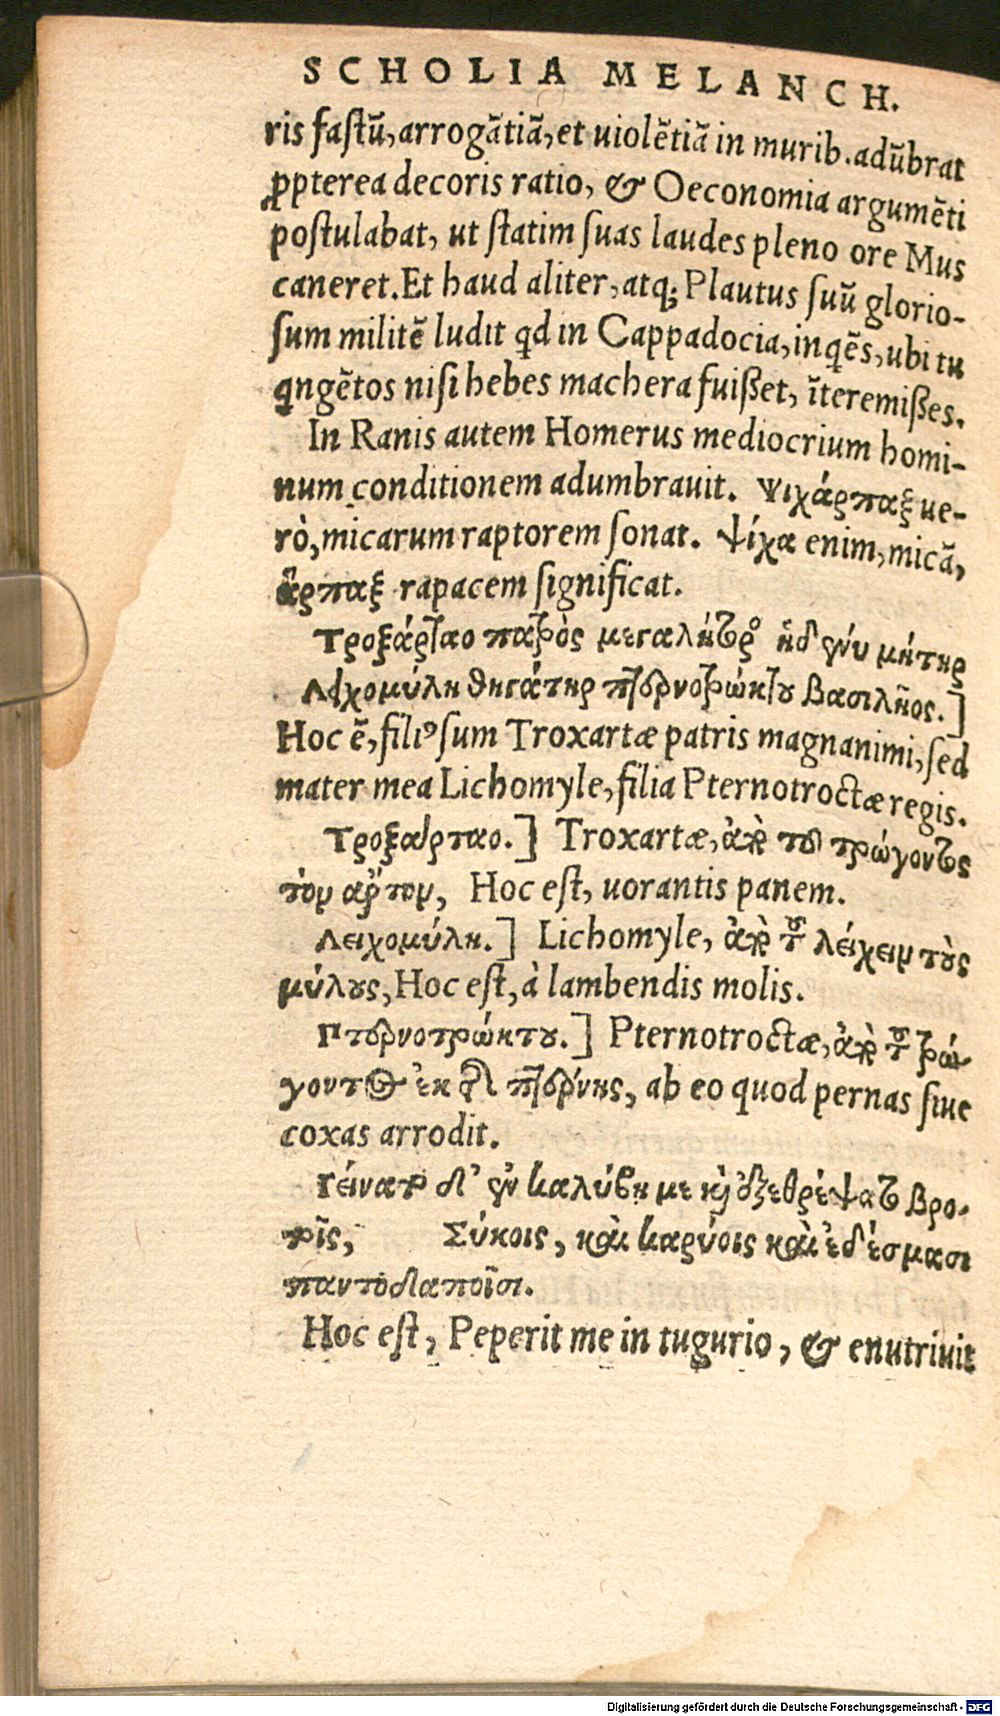 SCHOLIA MELANCH.
ris faſtũ, arrogãtiã, et uiolẽtiã in murib. adũbrat
ꝓpterea decoris ratio, & Oeconomia argumẽti
poſtulabat, ut ſtatim ſuas laudes pleno ore Mus
caneret. Et haud aliter, atq; Plautus ſuũ glorio-
ſum militẽ ludit qd in Cappadocia, inqẽs, ubi tu
qngẽtos niſi hebes machera fuiſſet, ĩteremiſſes.
In Ranis autem Homerus mediocrium homi-
num conditionem adumbrauit. Ψιχάρπαξ ue-
rò, micarum raptorem ſonat. ψίχα enim, micã,
ἅρπαξ rapacem ſignificat.
Τροξάρταο πατρὸς μεγαλήτορος ἡδ' νύ μήτηρ
Λειχομύλη θηγάτηρ πτερνοτρώκτου βασιλῆος.]
Hoc ẽ, filiꝰ ſum Troxartæ patris magnanimi, ſed
mater mea Lichomyle, filia Pternotroctæ regis.
Τροξάρταο.] Troxartæ, ἀπὸ τοῦ τρώγοντος
τὸν ἄρτον, Hoc eſt, uorantis panem.
Λειχομύλη.] Lichomyle, ἀπὸ τοῦ λείχειν τοὺς
μύλους, Hoc eſt, à lambendis molis.
Πτερνοτρώκτου.] Pternotroctæ, ἀπὸ τοῦ τρώ-
γοντος ἐκ τῆς πτέρνης, ab eo quod pernas ſiue
coxas arrodit.
Γείνατο δ' ἐν καλύβῃ με καὶ ἐξεθρέψατο βρο-
τοῖς, Σύκοις, καὶ καρύοις καὶ ἐδέσμασι
παντοδαποῖσι.
Hoc eſt, Peperit me in tugurio, & enutriuit
Digitalisierung gefördert durch die Deutsche Forschungsgemeinschaft - DFG